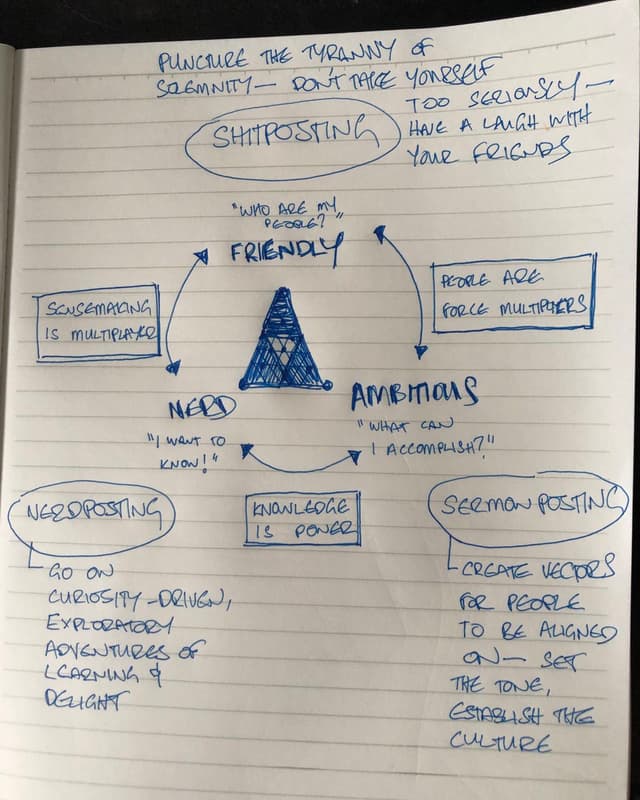 PUNCTURE THE TYRANNY OF
SOLEMNITY — DON'T TAKE YOURSELF
TOO SERIOUSLY —
HAVE A LAUGH WITH
YOUR FRIENDS
SHITPOSTING
"WHO ARE MY
PEOPLE?"
FRIENDLY
SENSEMAKING
IS MULTIPLAYER
PEOPLE ARE
FORCE MULTIPLIERS
NERD
"I WANT TO
KNOW!"
AMBITIOUS
"WHAT CAN
I ACCOMPLISH?"
KNOWLEDGE
IS POWER
NERDPOSTING
GO ON
CURIOSITY-DRIVEN,
EXPLORATORY
ADVENTURES OF
LEARNING &
DELIGHT
SERMONPOSTING
CREATE VECTORS
FOR PEOPLE
TO BE ALIGNED
ON — SET
THE TONE,
ESTABLISH THE
CULTURE